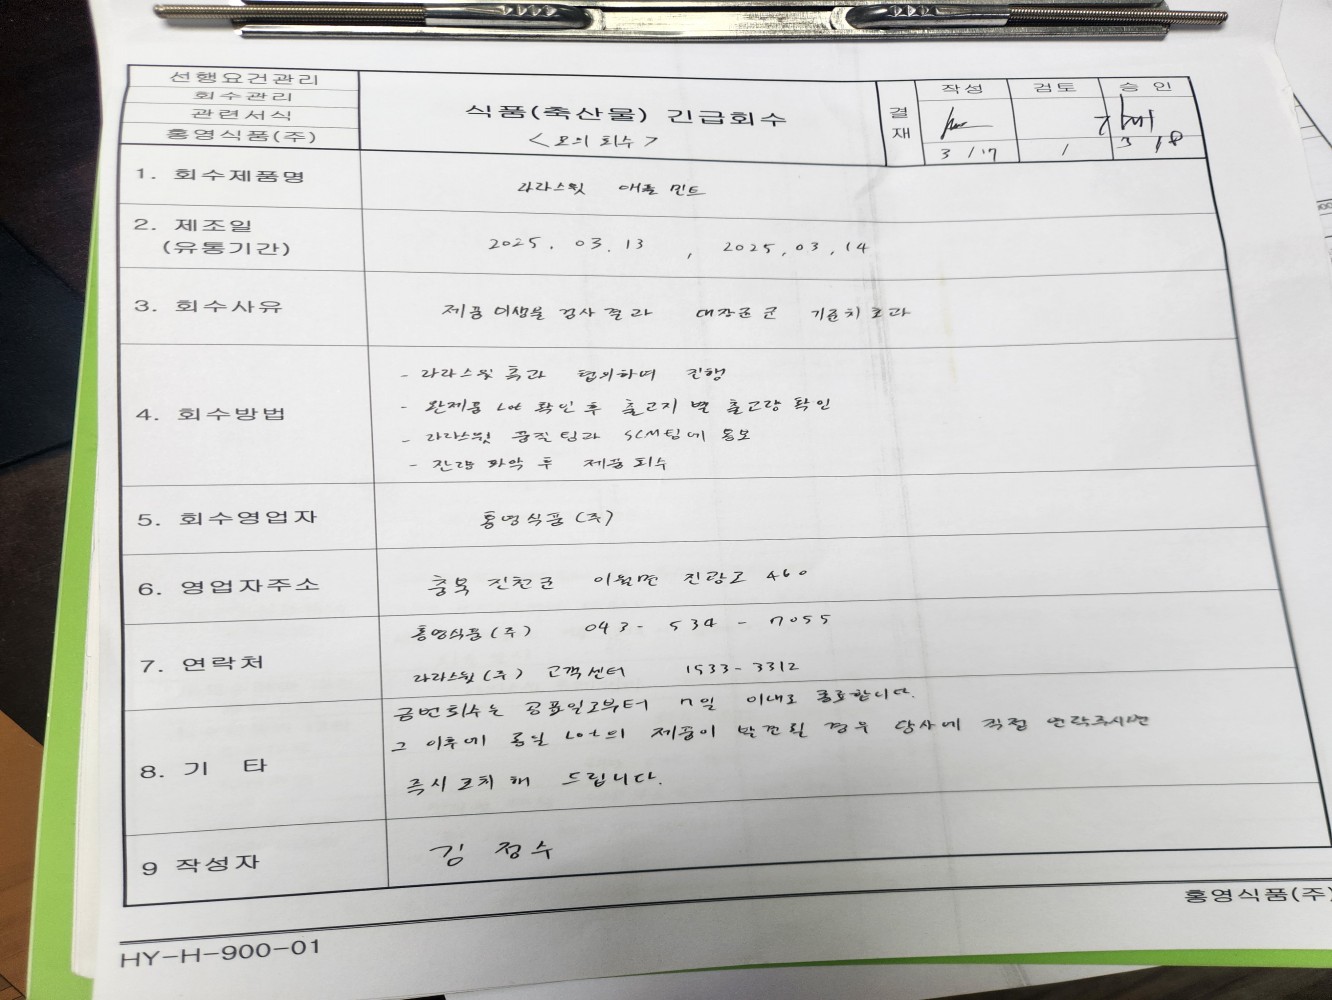 선행요건관리
회수관리
관련서식
홍영식품(주)
식품(축산물) 긴급회수
<모의 회수>
결재
작성 검토 승인
3/17 / 3/18
1. 회수제품명
라라스윗 애플 민트
2. 제조일
(유통기간)
2025. 03. 13 , 2025. 03. 14
3. 회수사유
제품 미생물 검사 결과 대장균군 기준치 초과
4. 회수방법
- 라라스윗 측과 협의하여 진행
- 완제품 Lot 확인 후 출고지 별 출고량 확인
- 라라스윗 품질팀과 SCM팀에 통보
- 잔량 파악 후 제품 회수
5. 회수영업자
홍영식품(주)
6. 영업자주소
충북 진천군 이월면 진광로 460
7. 연락처
홍영식품(주) 043-534-7055
라라스윗(주) 고객센터 1533-3312
8. 기 타
금번회수는 공표일로부터 7일 이내로 종료합니다.
그 이후에 동일 Lot의 제품이 발견될 경우 당사에 직접 연락주시면
즉시 조치 해 드립니다.
9 작성자
김정수
홍영식품(주)
HY-H-900-01